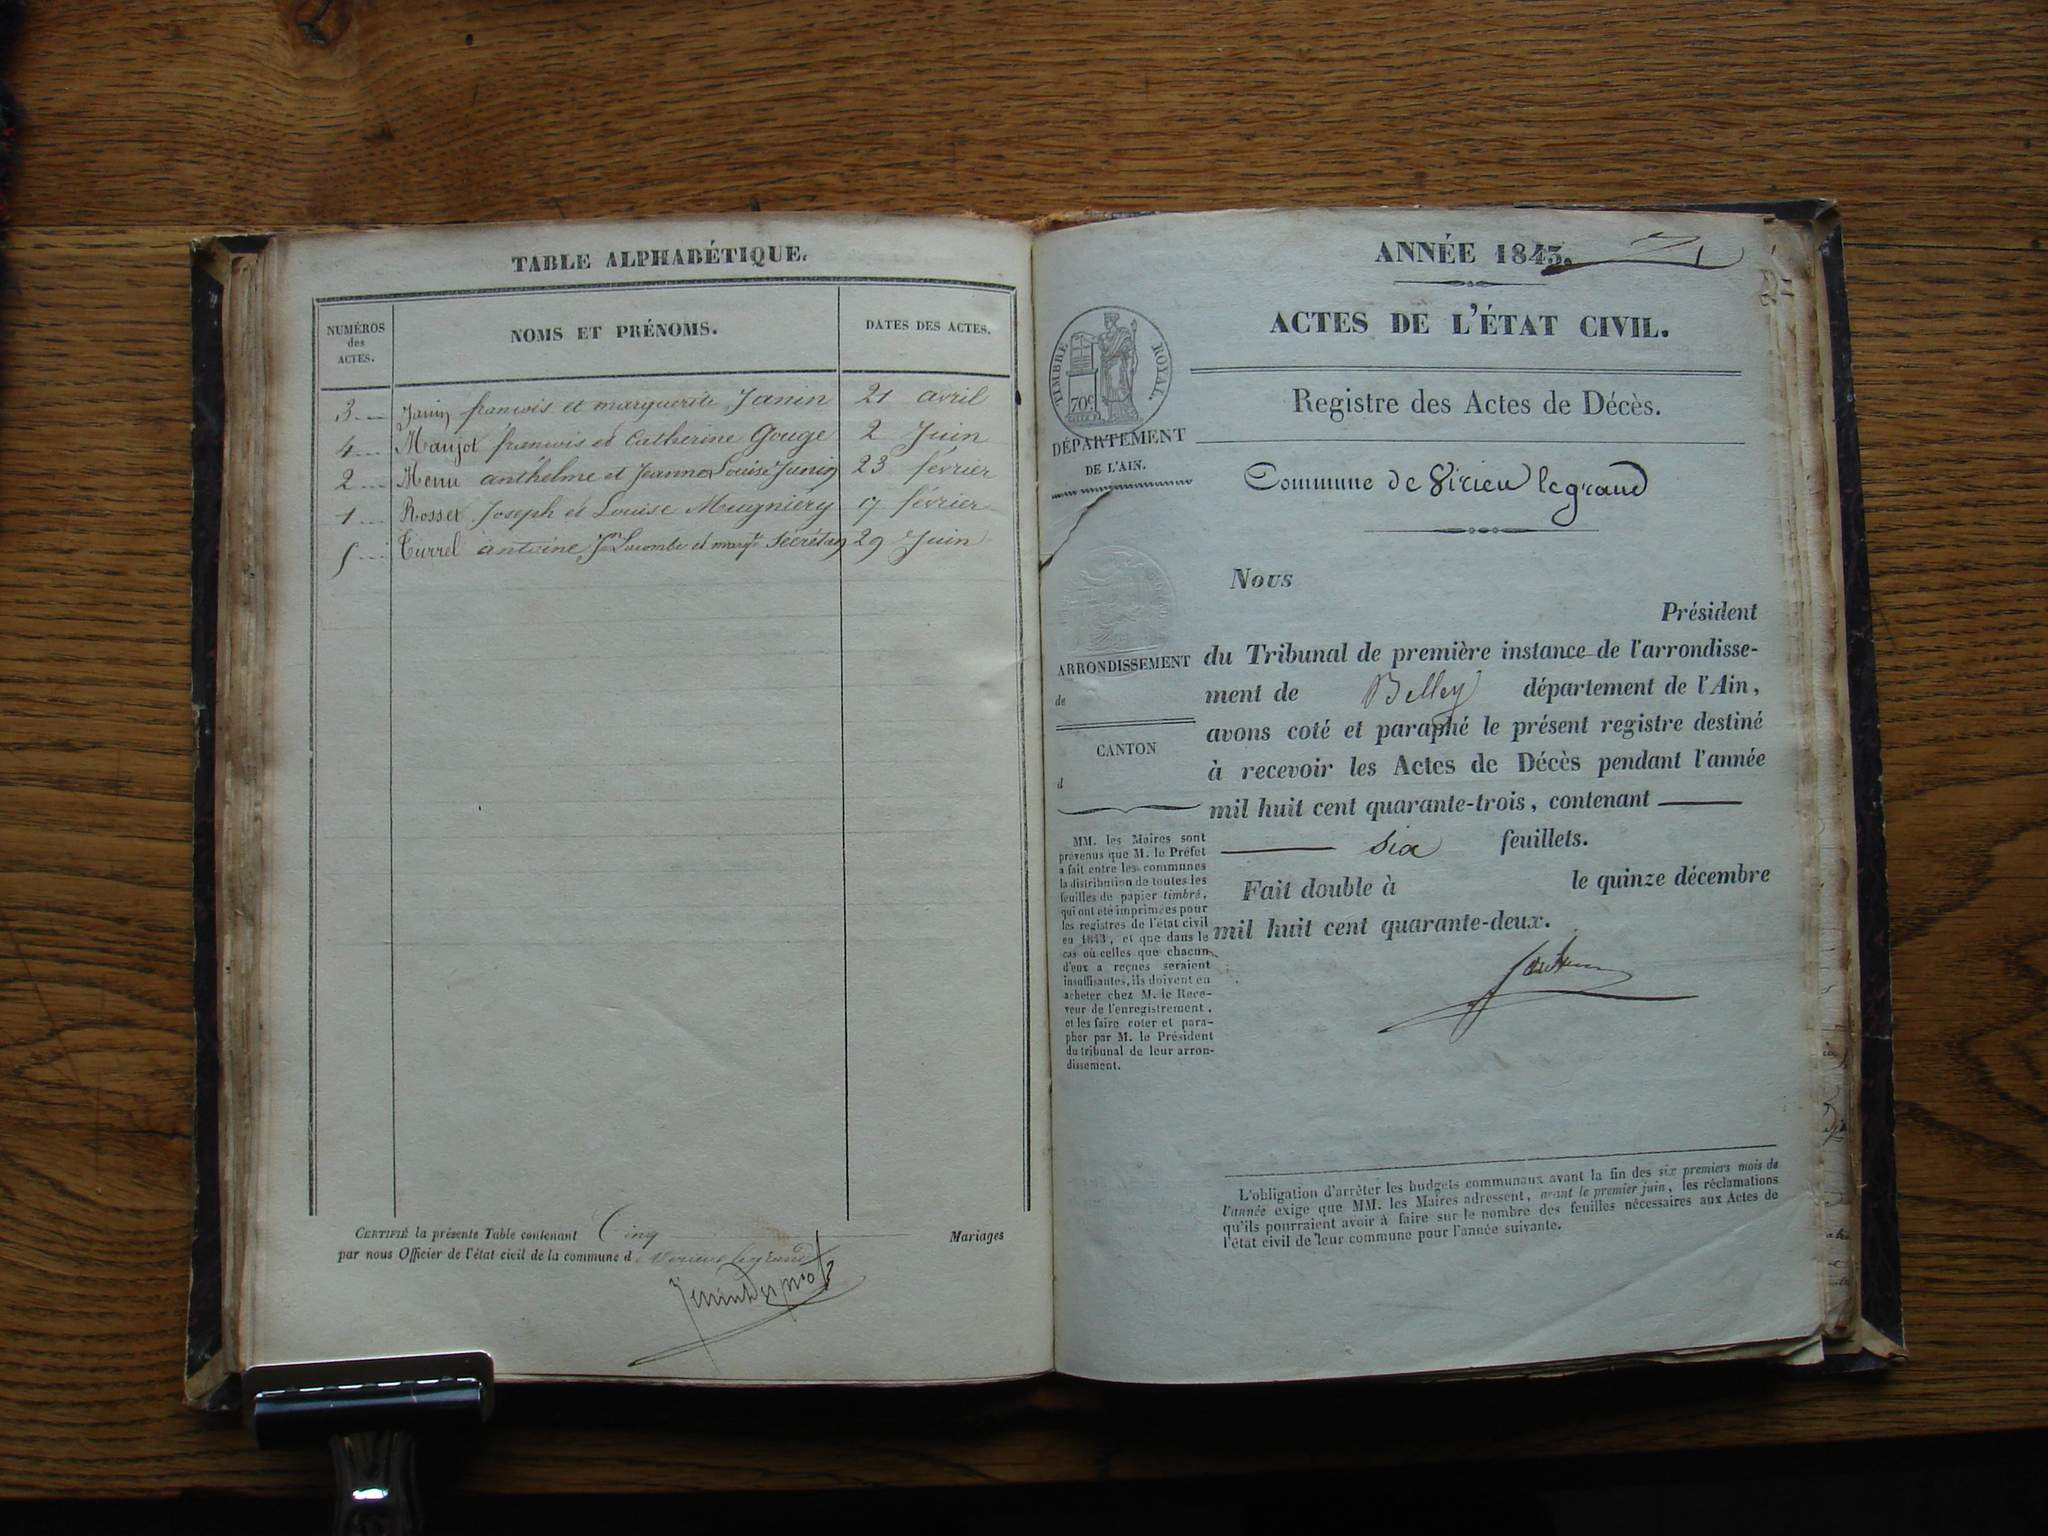 TABLE ALPHABÉTIQUE.
NUMÉROS
des
ACTES.
NOMS ET PRÉNOMS.
DATES DES ACTES.
3 Janin françois et marguerite Janin 21 avril
4 Maujot françois et Catherine Gouge 2 Juin
2 Menu anthelme et Jeanne Louise Junin 23 février
1 Rosset Joseph et Louise Mugniéry 17 février
5 Turrel antoine Jn Lacombe et margte Secrétan 29 Juin
CERTIFIÉ la présente Table contenant Cinq Mariages
par nous Officier de l'état civil de la commune d Virieu le grand
ANNÉE 1843.
TIMBRE ROYAL
70c
ACTES DE L'ÉTAT CIVIL.
Registre des Actes de Décès.
DÉPARTEMENT
DE L'AIN.
Commune de Virieu legrand
ARRONDISSEMENT
de
CANTON
d
MM. les Maires sont
prévenus que M. le Préfet
a fait entre les communes
la distribution de toutes les
feuilles de papier timbré,
qui ont été imprimées pour
les registres de l'état civil
en 1843, et que dans le
cas où celles que chacun
d'eux a reçues seraient
insuffisantes, ils doivent en
acheter chez M. le Rece-
veur de l'enregistrement,
et les faire coter et para-
pher par M. le Président
du tribunal de leur arron-
dissement.
Nous
Président
du Tribunal de première instance de l'arrondisse-
ment de Belley département de l'Ain,
avons coté et paraphé le présent registre destiné
à recevoir les Actes de Décès pendant l'année
mil huit cent quarante-trois, contenant
six feuillets.
Fait double à le quinze décembre
mil huit cent quarante-deux.
L'obligation d'arrêter les budgets communaux avant la fin des six premiers mois de
l'année exige que MM. les Maires adressent, avant le premier juin, les réclamations
qu'ils pourraient avoir à faire sur le nombre des feuilles nécessaires aux Actes de
l'état civil de leur commune pour l'année suivante.